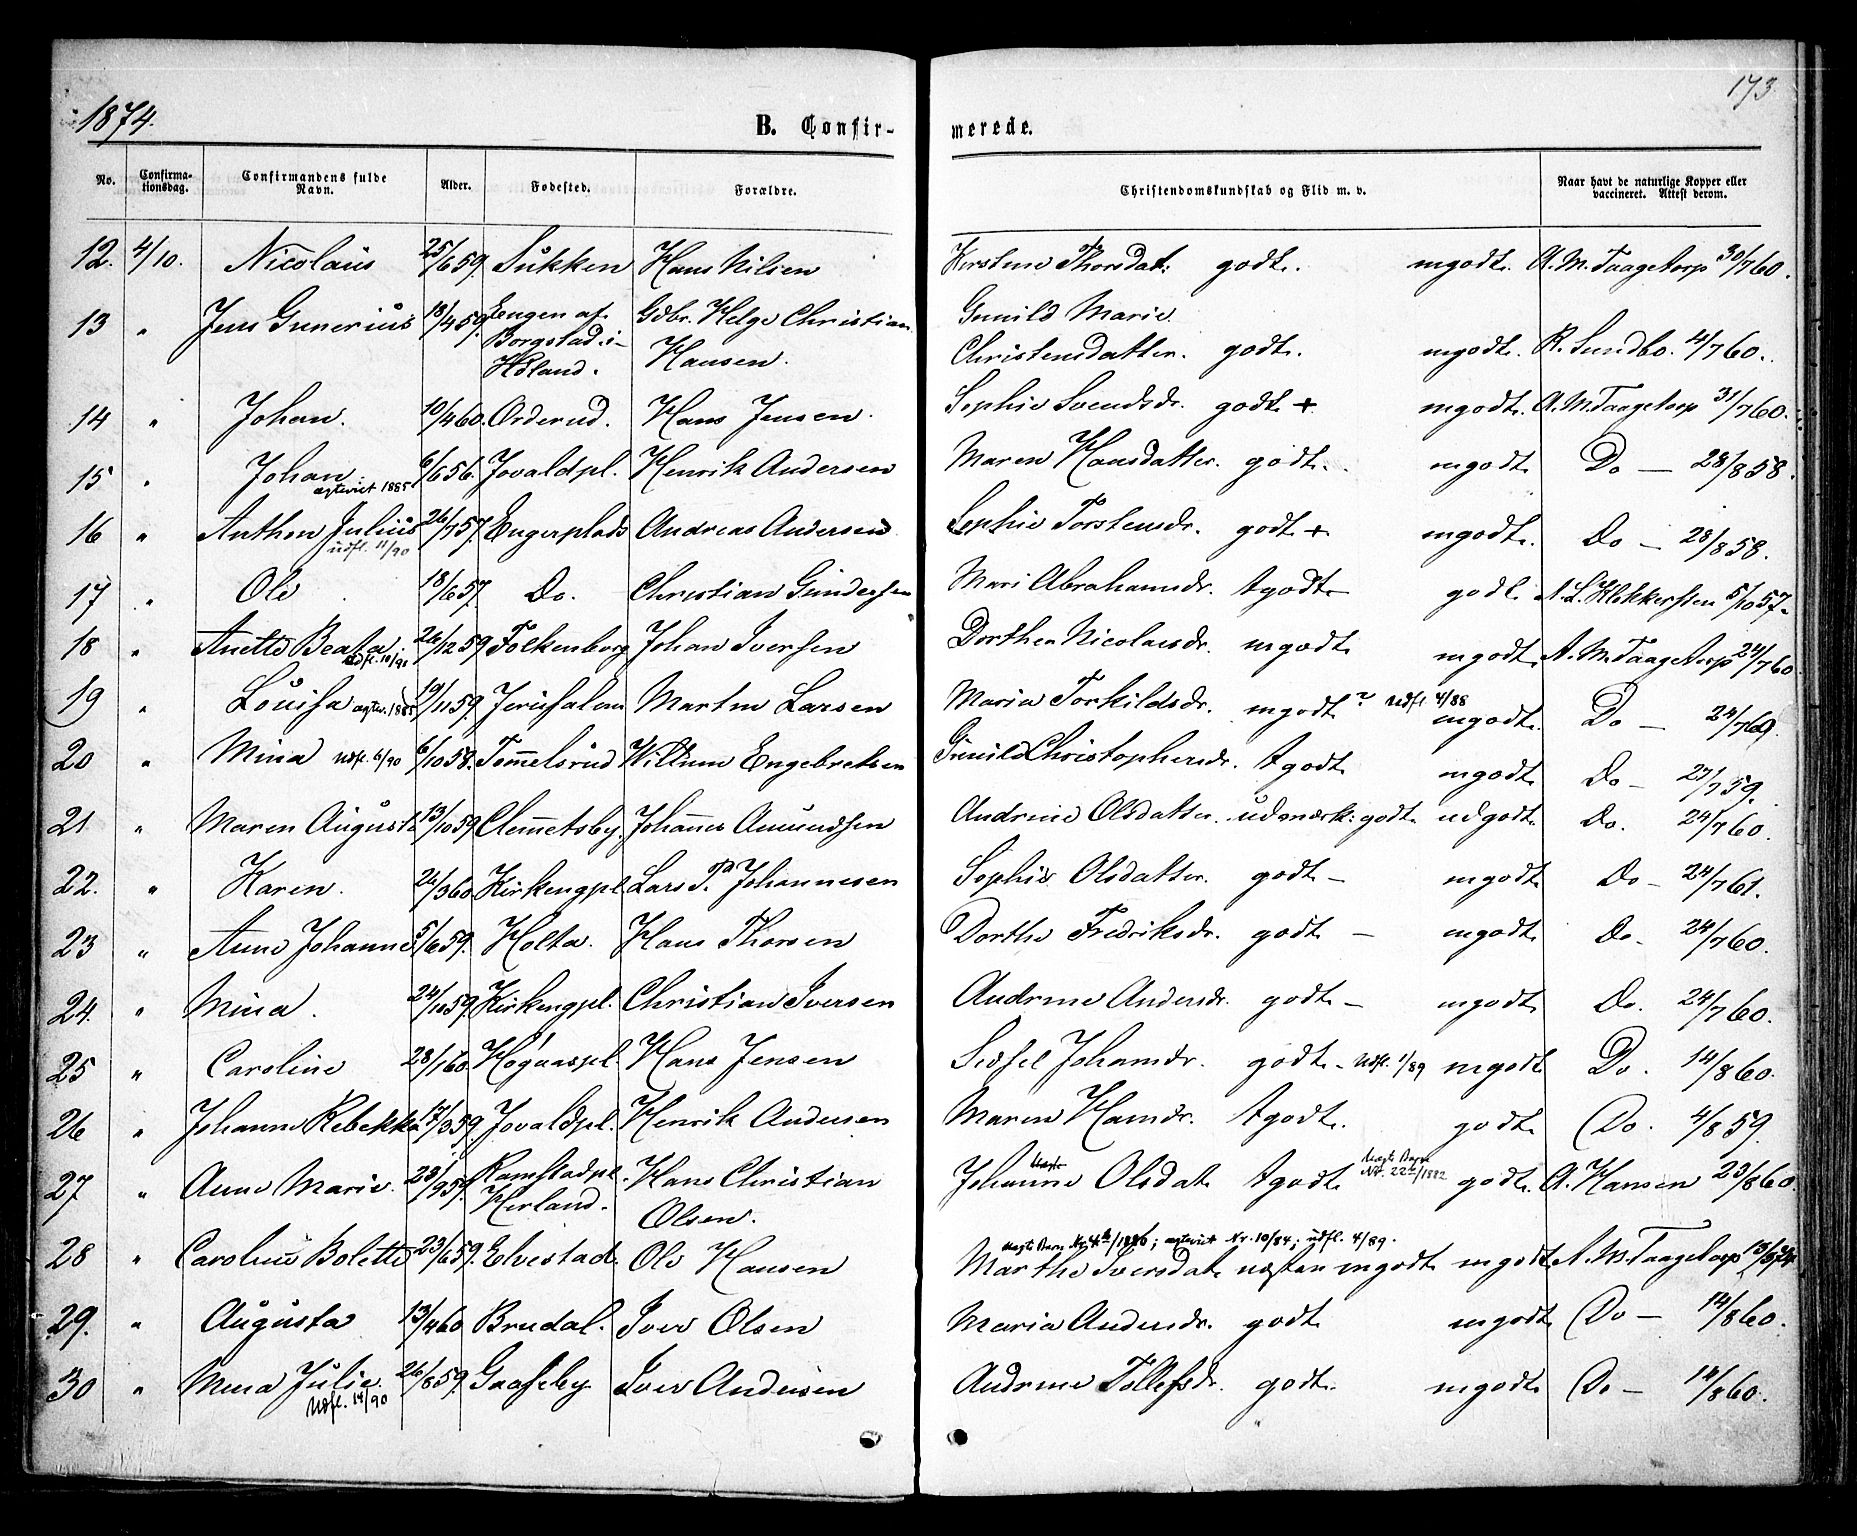 173
1874.
B. Confir-
merede.
No. Confirma-tionsdag. Confirmandens fulde Navn. Alder. Fødested. Forældre. Christendomskundskab og Flid m. v. Naar havt de naturlige Kopper eller vaccineret. Attest derom.
12. 4/10. Nicolaus 25/6 59. Sukken Hans Nilsen Kirstine Thorsdat: godt. mgodt. A. M. Taagetorp 30/7 60.
13 " Jens Gunerius 18/4 59. Engen af Gdbr. Helge Christian Gunild Marie
Borgstad i Hansen. Christensdatter. godt. mgodt. R. Sundbo. 4/7 60.
Høland.
14 " Johan. 10/4 60. Orderud. Hans Jensen. Sophie Svendsdr. godt + mgodt. A. M. Taagetorp 31/7 60.
15 " Johan 6/6 56. Jovaldpl. Henrik Andersen Maren Hansdatter. godt. mgodt Do — 28/8 58.
ægteviet 1885
16 " Anthon Julius 26/7 57. Engerplads Andreas Andersen Sophie Torstensdr. godt + mgodt. Do — 28/8 58.
udfl. 11/90
17 " Ole 18/6 57. Do. Christian Gundersen Mari Abrahamsdr. tgodt godt. A. L. Klokkersten 5/10 57.
18 " Anette Beata 26/12 59 Folkenborg Johan Iversen Dorthea Nicolaisdr. mgodt mgodt A. M. Taagetorp 24/7 60
udfl. 10/90
19 " Louisa ægtev. 1885 19/11 59. Jerusalem Martin Larsen Maria Torkildsdr. mgodt ÷ udfl. 4/88 mgodt. Do — 24/7 60.
20 " Mina udfl. 6/90 6/10 58. Tommelsrud Willum Engebretsen Gunild Christophersdr. tgodt mgodt Do — 27/7 59.
21 " Maren Augusta 13/10 59. Clemetsby. Johannes Amundsen Andrine Olsdatter. udmærk: godt. udgodt. Do. 24/7 60.
22. " Karen. 26/3 60. Kirkengpl. Lars P. Johannesen Sophie Olsdatter. godt — mgodt Do — 24/7 61.
23 " Anne Johanne 5/6 59. Holta. Hans Thorsen Dorthe Fredriksdr. godt — mgodt Do. 24/7 60.
24. " Mina. 24/10 59. Kirkengpl. Christian Iversen Andrine Andersdr. godt — mgodt Do. 24/7 60.
25 " Caroline 28/1 60. Høgaaspl. Hans Jensen Sidsel Johansdr. godt — udfl. 1/89 mgodt Do. 14/8 60.
26 " Johanne Rebekka 17/3 59. Jovaldpl. Henrik Andersen Maren Hansdr. tgodt. godt Do. 4/8 59.
27 " Anne Marie. 23/9 59. Ramstadpl. Hans Christian Johanne Olsdat. tgodt uægte Barn Nr. 22/1882 godt. A. Hansen 23/8 60.
Herland. Olsen.
28 " Caroline Bolette 23/6 59. Elvestad. Ole Hansen Marthe Iversdat. næsten mgodt mgodt A. M. Taagetorp
ægteviet Nr. 10/84; udfl. 4/89.
29. " Augusta 13/4 60 Brudal. Iver Olsen Maria Andersdr. godt mgodt Do — 14/8 60.
30 " Mina Julie. 26/8 59. Gaaseby Iver Andersen Andrine Tollefsdr. godt. mgodt Do — 14/8 60.
udfl. 14/90